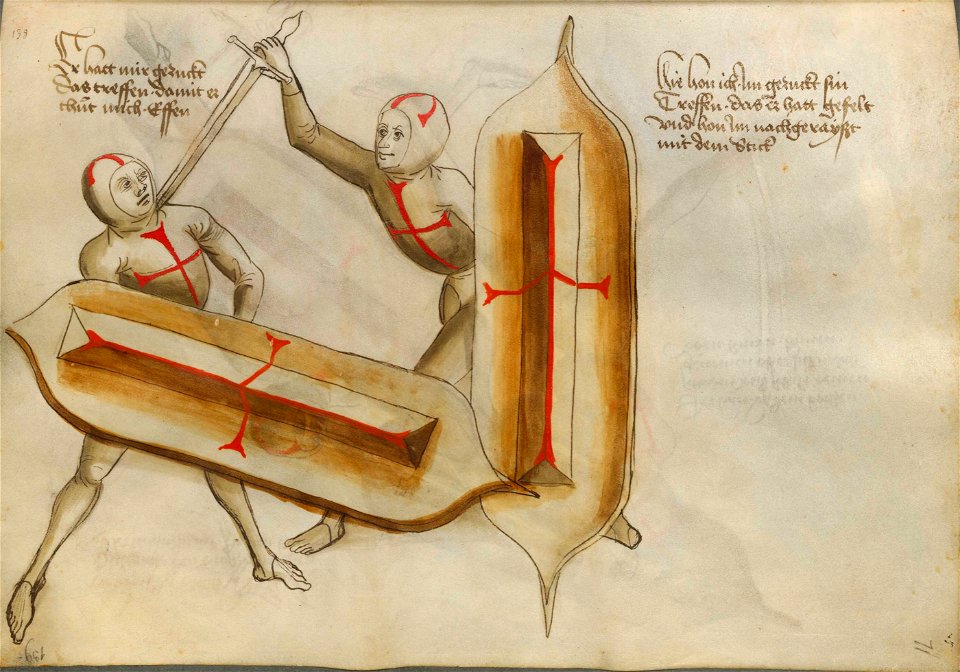 Er hatt mir gezuckt
das treffen damit er
thůt mich Effen
Hie hon ich Im gezuckt sin
Treffen · das Er hatt gefelt
vnd hon Im nachgerayßt
mit dem Stich
139